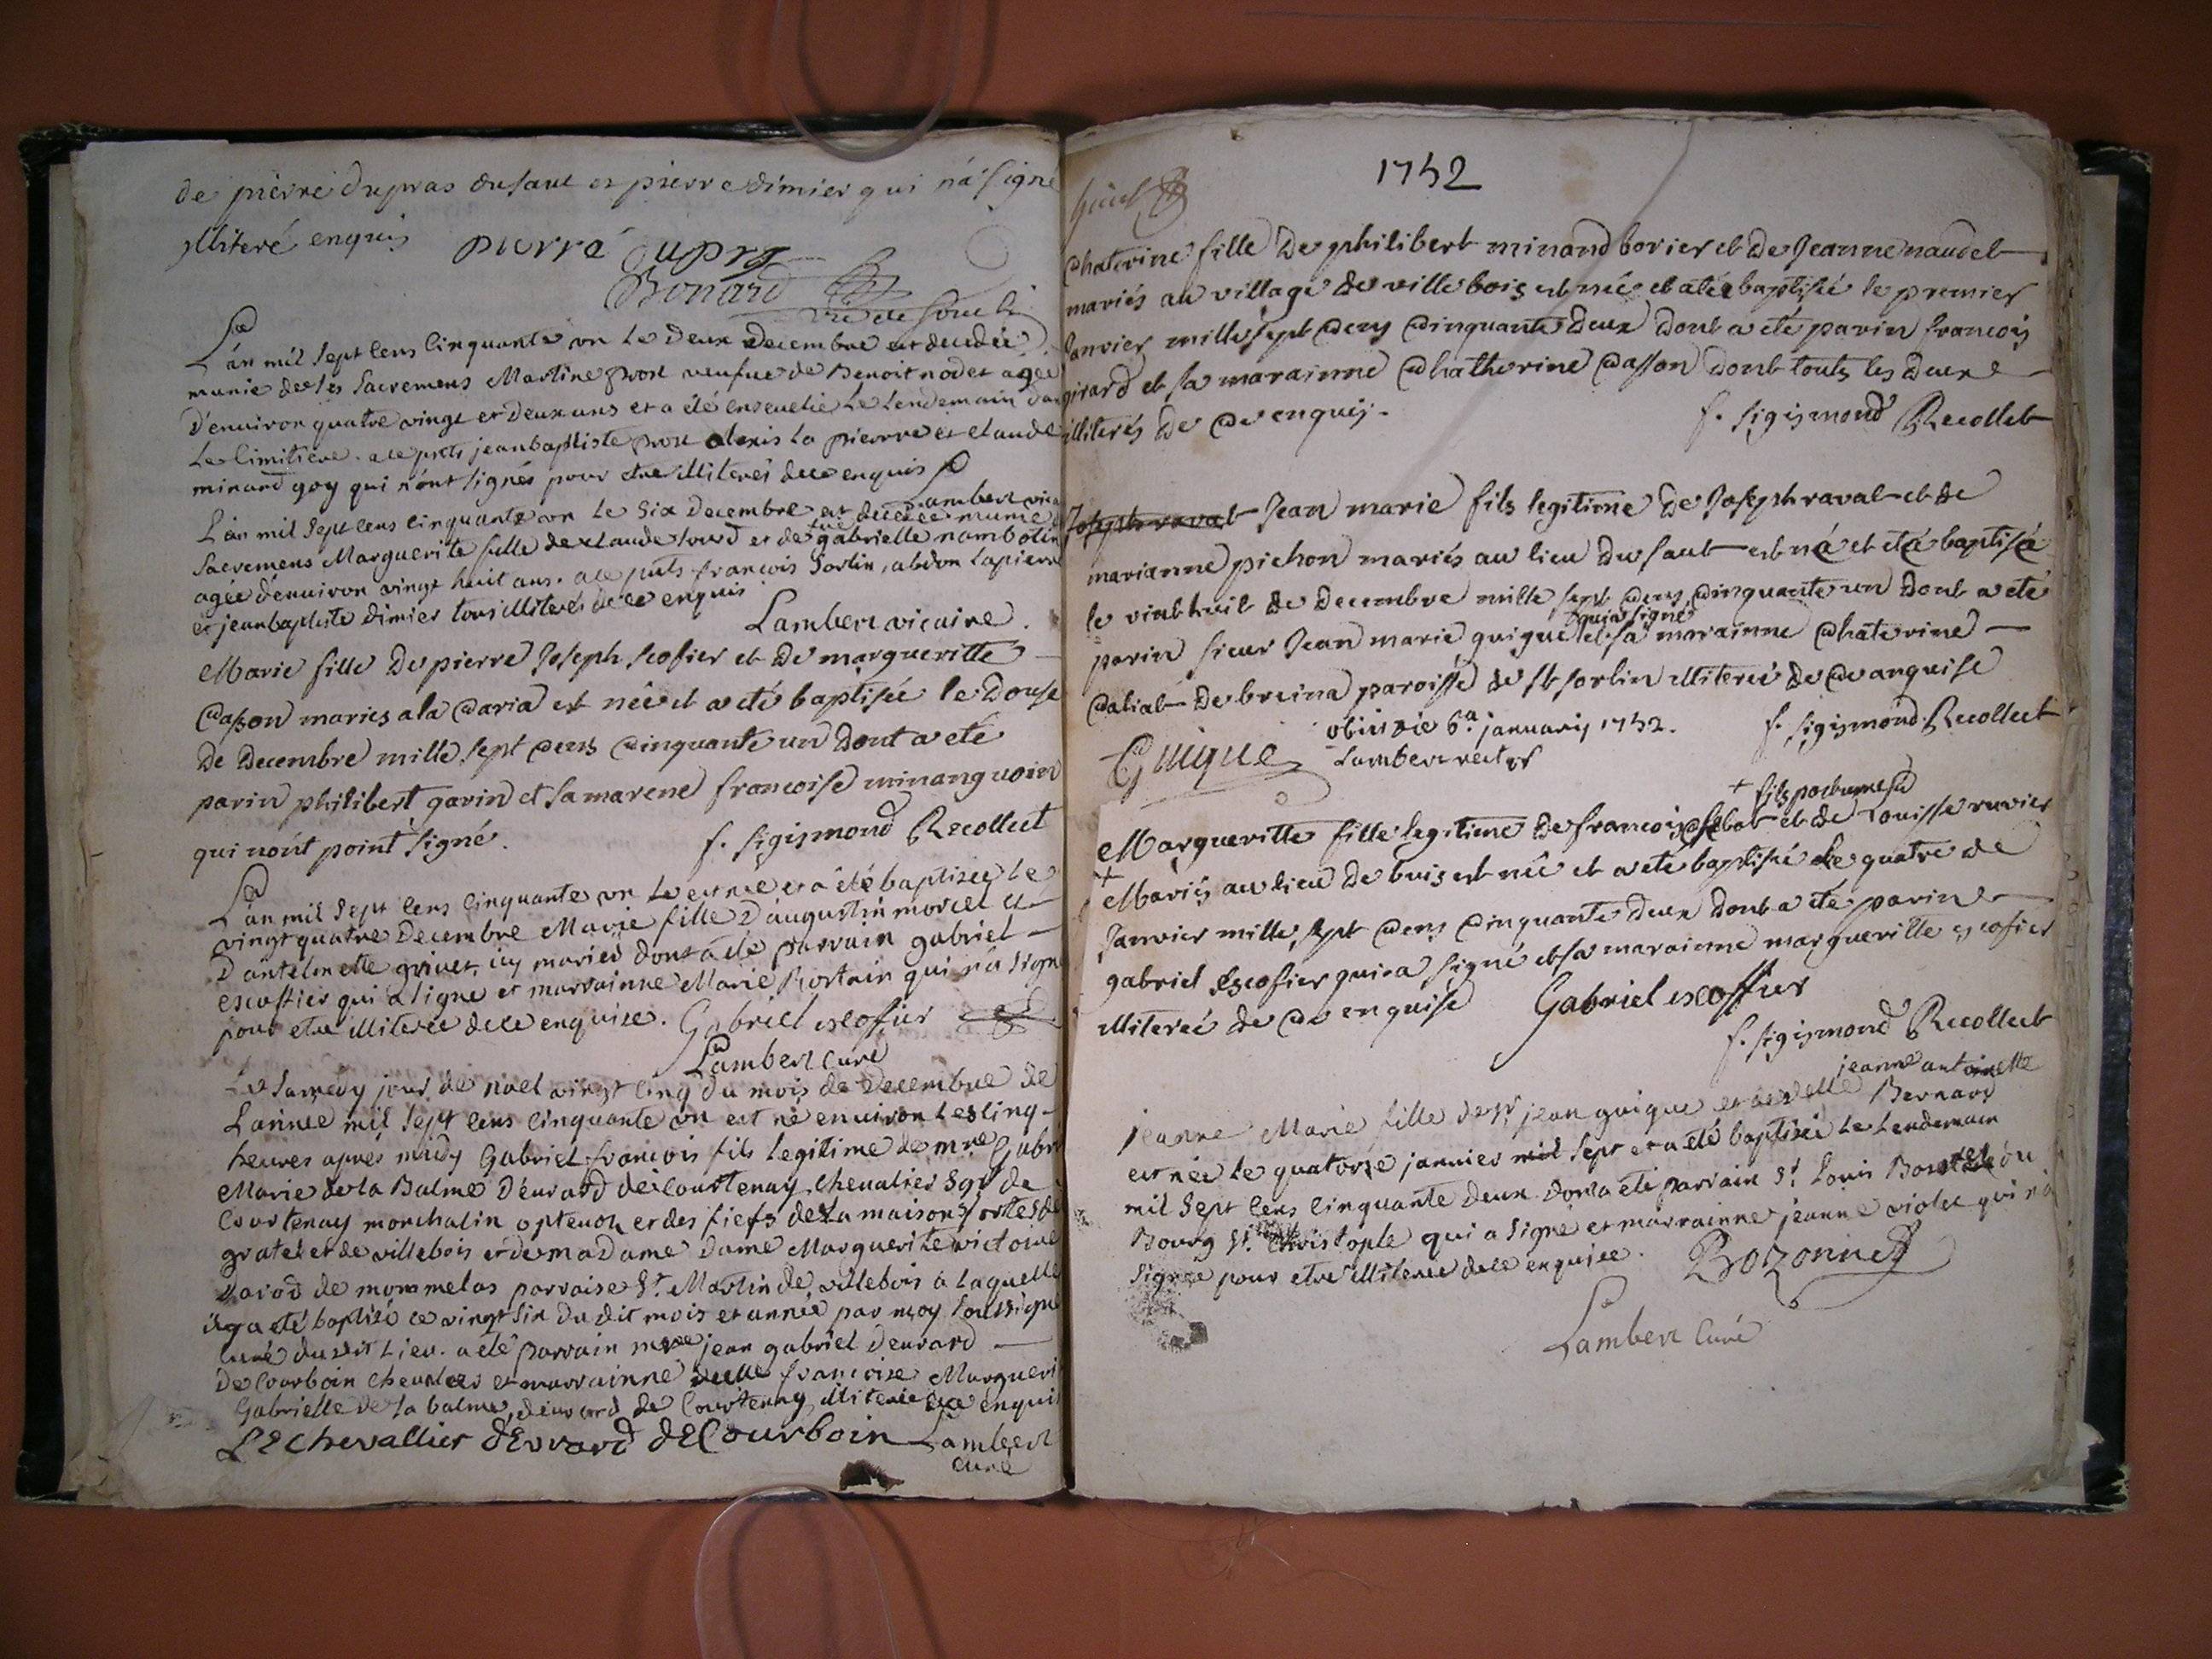 de pierre dupras dusaut et pierre dimier qui n'a signé
illiteré enquis pierre dupra
Bonard
L'an mil sept cens cinquante un le deux decembre est decedée
munie de ses sacremens Martine veufve de Benoit nodet agée
d'environ quatre vingt et deux ans et a été ensevelie le lendemain dan
le cimitière. a ce pnts jean baptiste alexis la pierre et claude
minand goy qui n'ont signés pour etre illiterés de ce enquis
Lambert vicai
L'an mil sept cens cinquante un le six decembre est decedée munie
sacremens Marguerite fille de claude et de gabrielle
agée d'environ vingt huit ans. a ce pnts francois Sorlin, abdon Lapierre
et jean baptiste dimier tous illiterés de ce enquis
Lambert vicaire.
Marie fille de pierre Joseph scofier et de margueritte
casson maries a la caria est née et a été baptisée le douse
de decembre mille sept cens cinquante un dont a eté
parin philibert garin et sa marene francoise minanguoin
qui n'ont point signé. f. sigismond Recollect
L'an mil sept cens cinquante un le est née et a été baptisée le
vingt quatre decembre Marie fille d'augustin morcel et
d'antelmette grivet, icy mariés dont a été parrain gabriel
escoffier qui a signé et marrainne Marie Rortain qui n'a signé
pour etre illiterée de ce enquise. Gabriel escofier
Lambert curé
Le samedy jour de noel vingt cinq du mois de decembre de
L'année mil sept cens cinquante un est né environ les cinq
heures aprés midy Gabriel francois fils legitime de mre Gabri
Marie de la Balme d'euvard de Courtenay, chevalier sgr de
Courtenay morchalin optevon et des fiefs de la maison fortes de
gratet et de villebois et de madame dame Marguerite victoire
de mommelas parroise St Martin de villebois a laquelle
il a eté baptisé ce vingt six du dit mois et année par moy soussigné
curé du dit Lieu. a eté parrain mre jean gabriel d'euvard
de Courboin chevalier et marrainne delle francoise Margueri
Gabrielle de la balme, d'euvard de Courtenay illiterée de ce enqui
Le chevallier dEvvard de Courboin Lambert
curé
huict
1752
Chaterine fille de philibert minand borier et de Jeanne naudet
mariés au village de villebois est née et a été baptisée le premier
Janvier mille sept cens cinquante deux dont a eté parin francois
girard et sa marainne Chatherine Casson dont touts les deux
illiterés de ce enquis. f. Sigismond Recollect
Joseph ravat Jean marie fils legitime de Joseph ravat et de
marianne pichon mariés au lieu du saut est né et eté baptisé
le vint huit de decembre mille sept cens cinquante un dont a eté
qui a signé
parin sieur Jean marie guigue et sa marainne Chaterine
caliat de breina paroisse de st sorlin illiterée de ce enquise
Guigue obiit die 6a. januarij 1752. f. sigismond Recollect
Lambert rector
+ fils postumes
Margueritte fille legitime de francois et de Louisse ruvier
+ Mariés au lieu de buis est née et a eté baptisée le quatre de
Janvier mille sept cens cinquante deux dont a eté parin
gabriel Escofier qui a signé et sa marainne margueritte escofier
illiterée de ce enquise Gabriel escoffier
f. sigismond Recollect
jeanne antoinette
jeanne Marie fille de sr jean guigue et de delle Bernard
est née le quatorze janvier mil sept et a eté baptisée le lendemain
mil sept cens cinquante deux dont a eté parrain sr Louis du
Bourg St. Christople qui a signé et marrainne jeanne violet qui n'a
signée pour etre illiterée de ce enquise. Bozonnet
Lambert curé